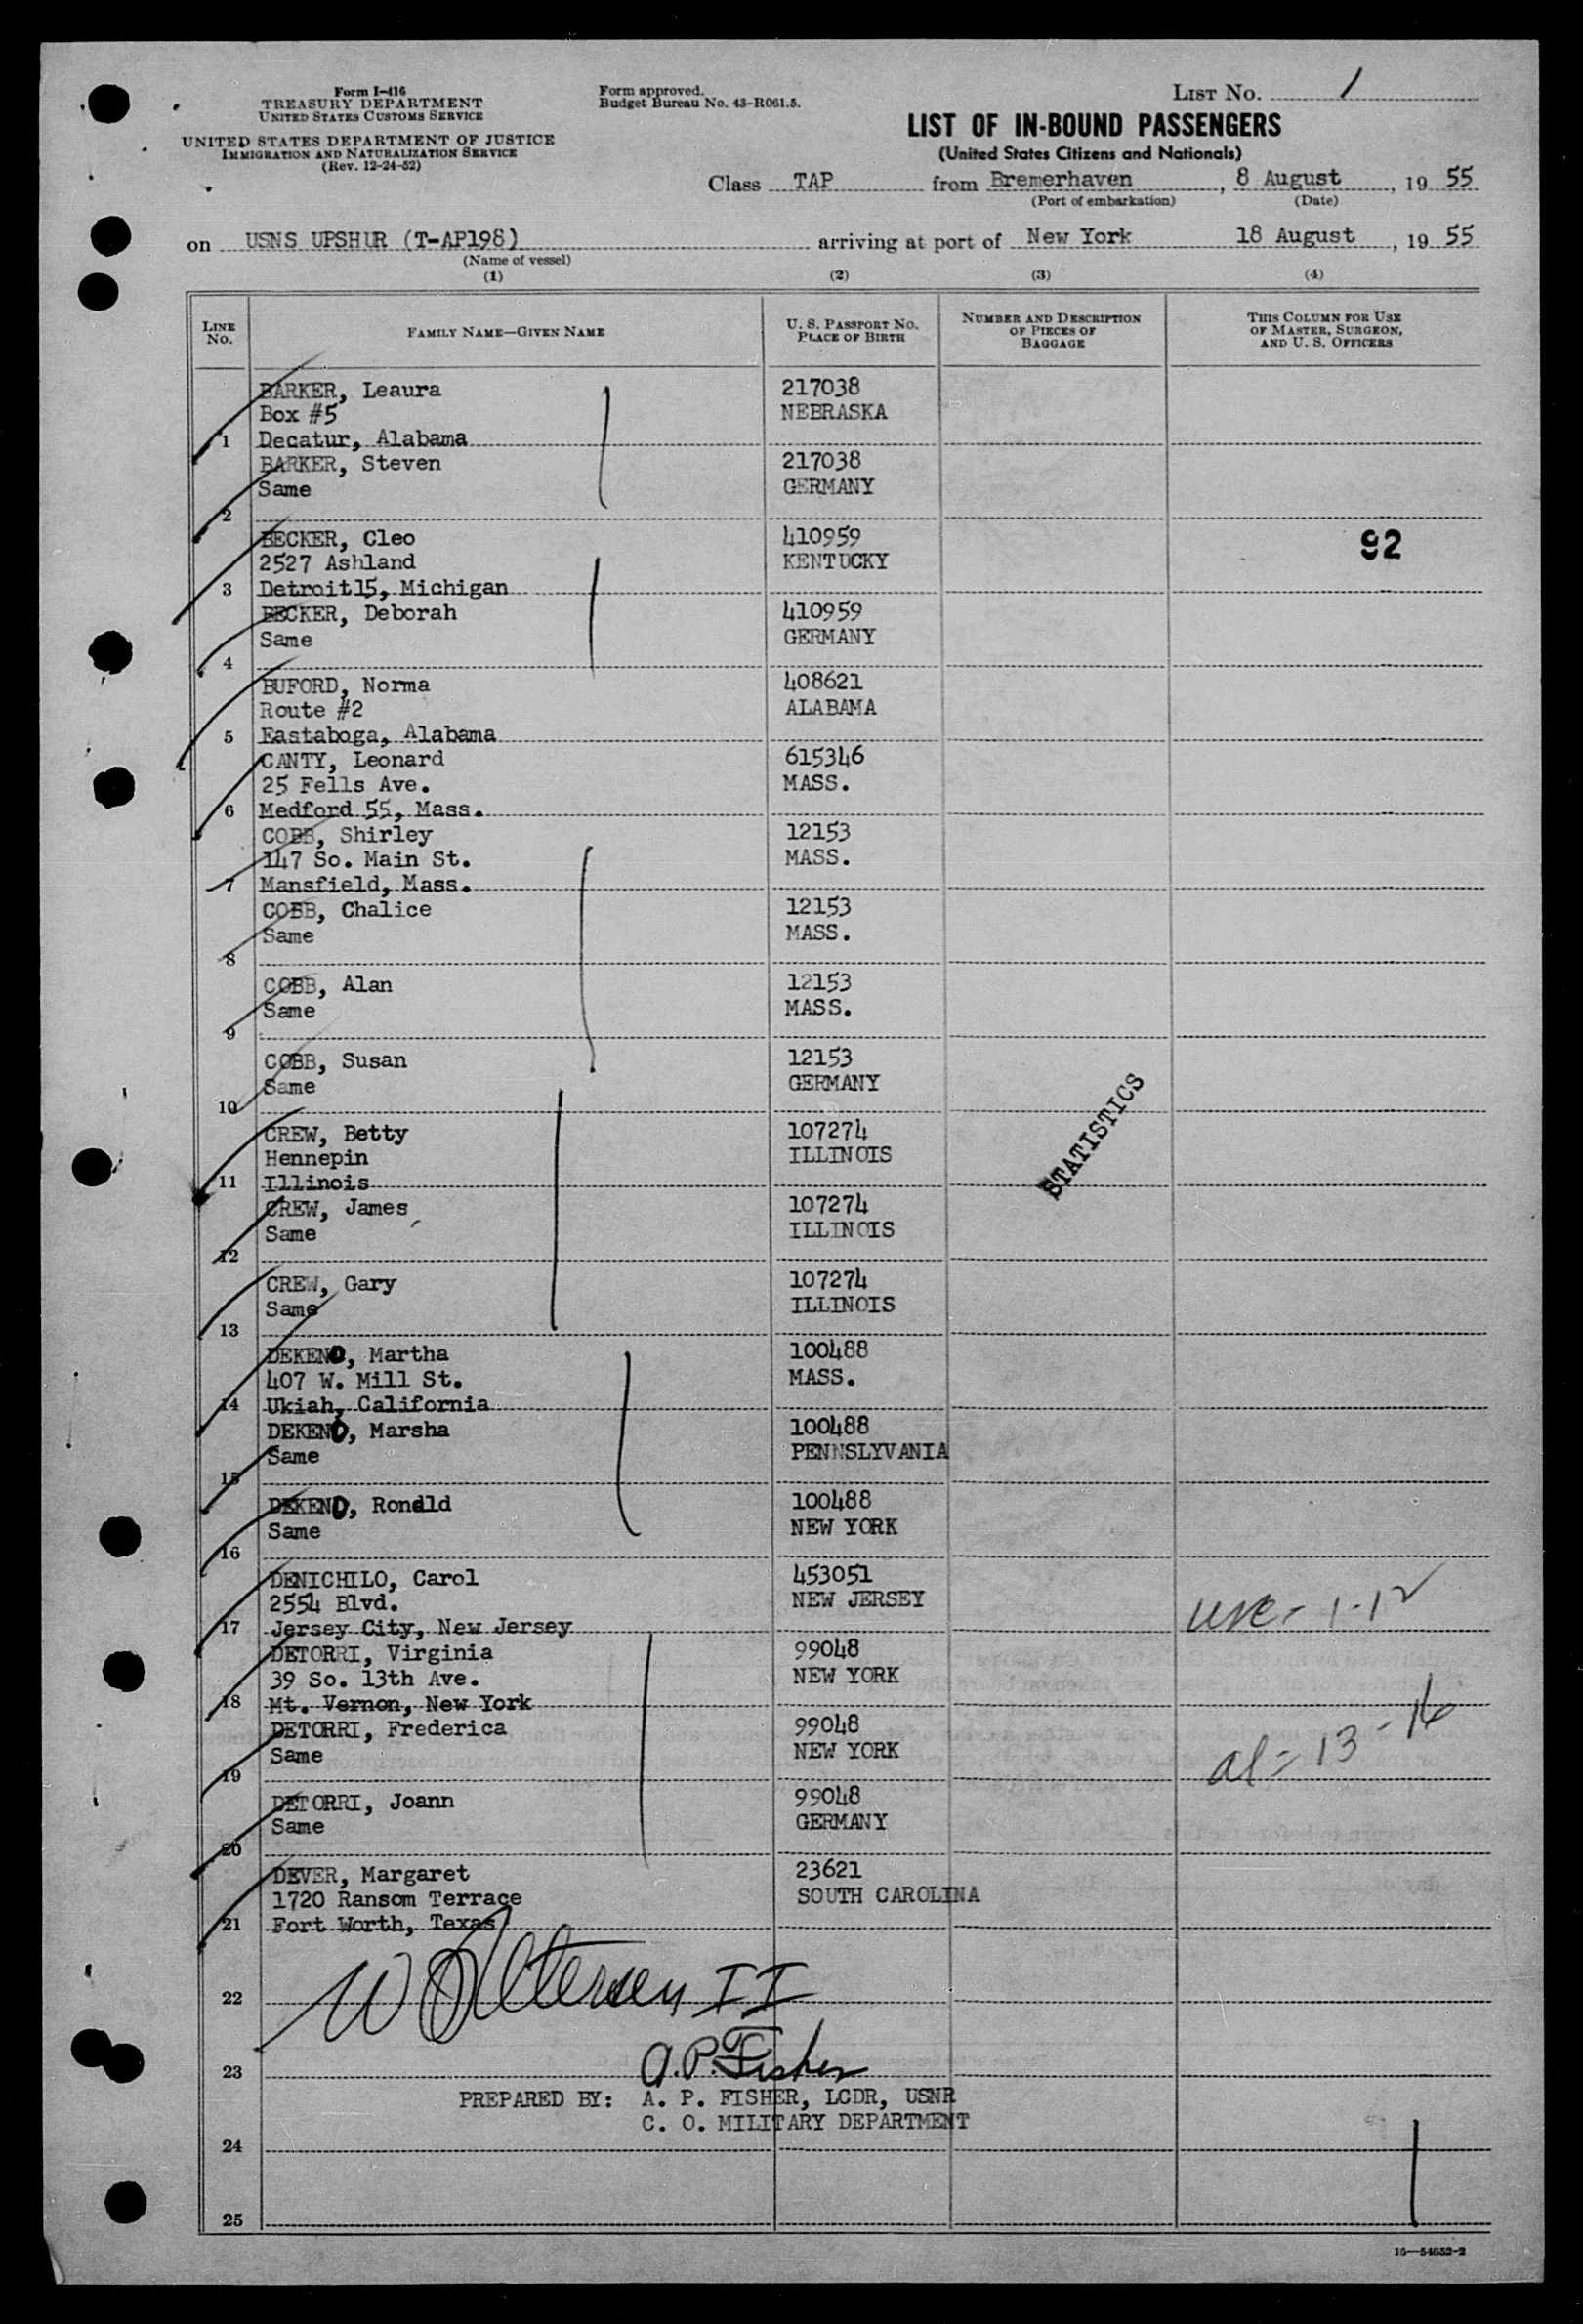 Form I-416
TREASURY DEPARTMENT
UNITED STATES CUSTOMS SERVICE
UNITED STATES DEPARTMENT OF JUSTICE
IMMIGRATION AND NATURALIZATION SERVICE
(Rev. 12-24-52)
Form approved.
Budget Bureau No. 43-R061.5.
LIST NO. 1
LIST OF IN-BOUND PASSENGERS
(United States Citizens and Nationals)
Class TAP from Bremerhaven, 8 August, 19 55
(Port of embarkation) (Date)
on USNS UPSHUR (T-AP198) arriving at port of New York 18 August, 19 55
(Name of vessel)
(1) (2) (3) (4)
LINE NO. FAMILY NAME—GIVEN NAME U. S. PASSPORT NO. PLACE OF BIRTH NUMBER AND DESCRIPTION OF PIECES OF BAGGAGE THIS COLUMN FOR USE OF MASTER, SURGEON, AND U. S. OFFICERS
BARKER, Leaura 217038
Box #5 NEBRASKA
1 Decatur, Alabama
BARKER, Steven 217038
Same GERMANY
2
BECKER, Cleo 410959 92
2527 Ashland KENTUCKY
3 Detroit15, Michigan
BECKER, Deborah 410959
Same GERMANY
4
BUFORD, Norma 408621
Route #2 ALABAMA
5 Eastaboga, Alabama
CANTY, Leonard 615346
25 Fells Ave. MASS.
6 Medford 55, Mass.
COBB, Shirley 12153
147 So. Main St. MASS.
7 Mansfield, Mass.
COBB, Chalice 12153
Same MASS.
8
COBB, Alan 12153
Same MASS.
9
COBB, Susan 12153
Same GERMANY
10
CREW, Betty 107274
Hennepin ILLINOIS
STATISTICS
11 Illinois
CREW, James 107274
Same ILLINOIS
12
CREW, Gary 107274
Same ILLINOIS
13
DEKEND, Martha 100488
407 W. Mill St. MASS.
14 Ukiah, California
DEKEND, Marsha 100488
Same PENNSLYVANIA
15
DEKEND, Ronald 100488
Same NEW YORK
16
DENICHILO, Carol 453051
2554 Blvd. NEW JERSEY
17 Jersey City, New Jersey
DETORRI, Virginia 99048
39 So. 13th Ave. NEW YORK
18 Mt. Vernon, New York
DETORRI, Frederica 99048
Same NEW YORK
al = 13 - 16
19
DETORRI, Joann 99048
Same GERMANY
20
DEVER, Margaret 23621
1720 Ransom Terrace SOUTH CAROLINA
21 Fort Worth, Texas
22
A.P. Fisher
23
PREPARED BY: A. P. FISHER, LCDR, USNR
C. O. MILITARY DEPARTMENT
24
25
16—54652-2